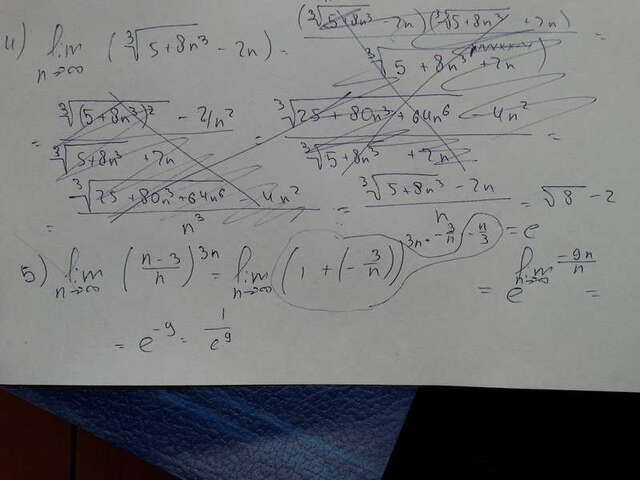 4) lim n→∞ (∛(5+8n³) - 2n) = (∛(5+8n³) - 2n)(∛(5+8n³) + 2n) / (∛(5+8n³) + 2n) =
= (∛((5+8n³)²) - 2/n²) / (∛(5+8n³) + 2n) = (∛(25+80n³+64n⁶) - 4n²) / (∛(5+8n³) + 2n) =
= (-∛(25+80n³+64n⁶) - 4n²) / n³ = (∛(5+8n³) - 2n) / n = √8 - 2
5) lim n→∞ ((n-3)/n)^(3n) = lim n→∞ (1 + (-3/n))^(3n · -3/n · -n/3) = e = e^(lim n→∞ -9n/n) =
= e⁻⁹ = 1/e⁹